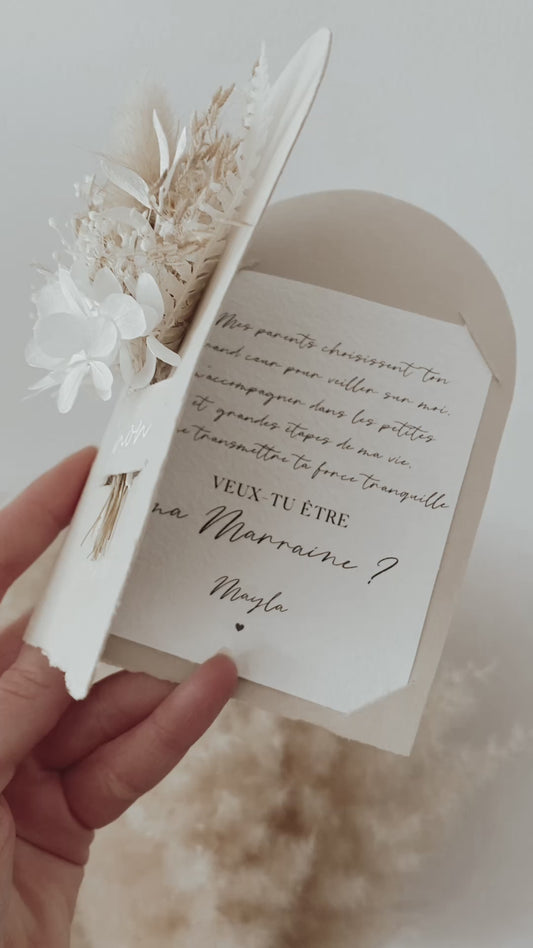 ron
Mes parents choisissent ton
grand cœur pour veiller sur moi,
m'accompagner dans les petites
et grandes étapes de ma vie,
me transmettre ta force tranquille
VEUX-TU ÊTRE
ma Marraine ?
Mayla